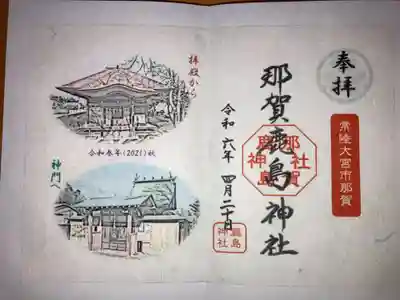 奉拝
常陸大宮市那賀
那賀鹿島神社
令和六年 四月二十日
拝殿から
令和参年(2021)秋
神門へ
那賀
鹿島
神社
鹿島
神社